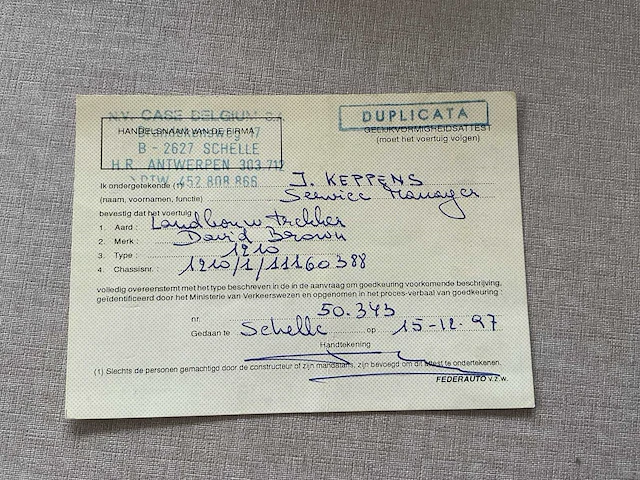 N.V. CASE BELGIUM S.A.
DUPLICATA
HANDELSNAAM VAN DE FIRMA
GELIJKVORMIGHEIDSATTEST
(moet het voertuig volgen)
B - 2627 SCHELLE
H.R. ANTWERPEN 303.712
BTW 452 808 866
Ik ondergetekende (1) J. KEPPENS
(naam, voornamen, functie) Service Manager
bevestig dat het voertuig
1. Aard : Landbouwtrekker
2. Merk : David Brown
3. Type : 1210
4. Chassisnr. : 1210/1/11160388
volledig overeenstemt met het type beschreven in de in aanvraag om goedkeuring voorkomende beschrijving,
geïdentificeerd door het Ministerie van Verkeerswezen en opgenomen in het proces-verbaal van goedkeuring :
nr. 50.343
Gedaan te Schelle op 15-12.97
Handtekening
(1) Slechts de personen gemachtigd door de constructeur of zijn mandataris, zijn bevoegd om dit attest te ondertekenen.
FEDERAUTO v.z.w.